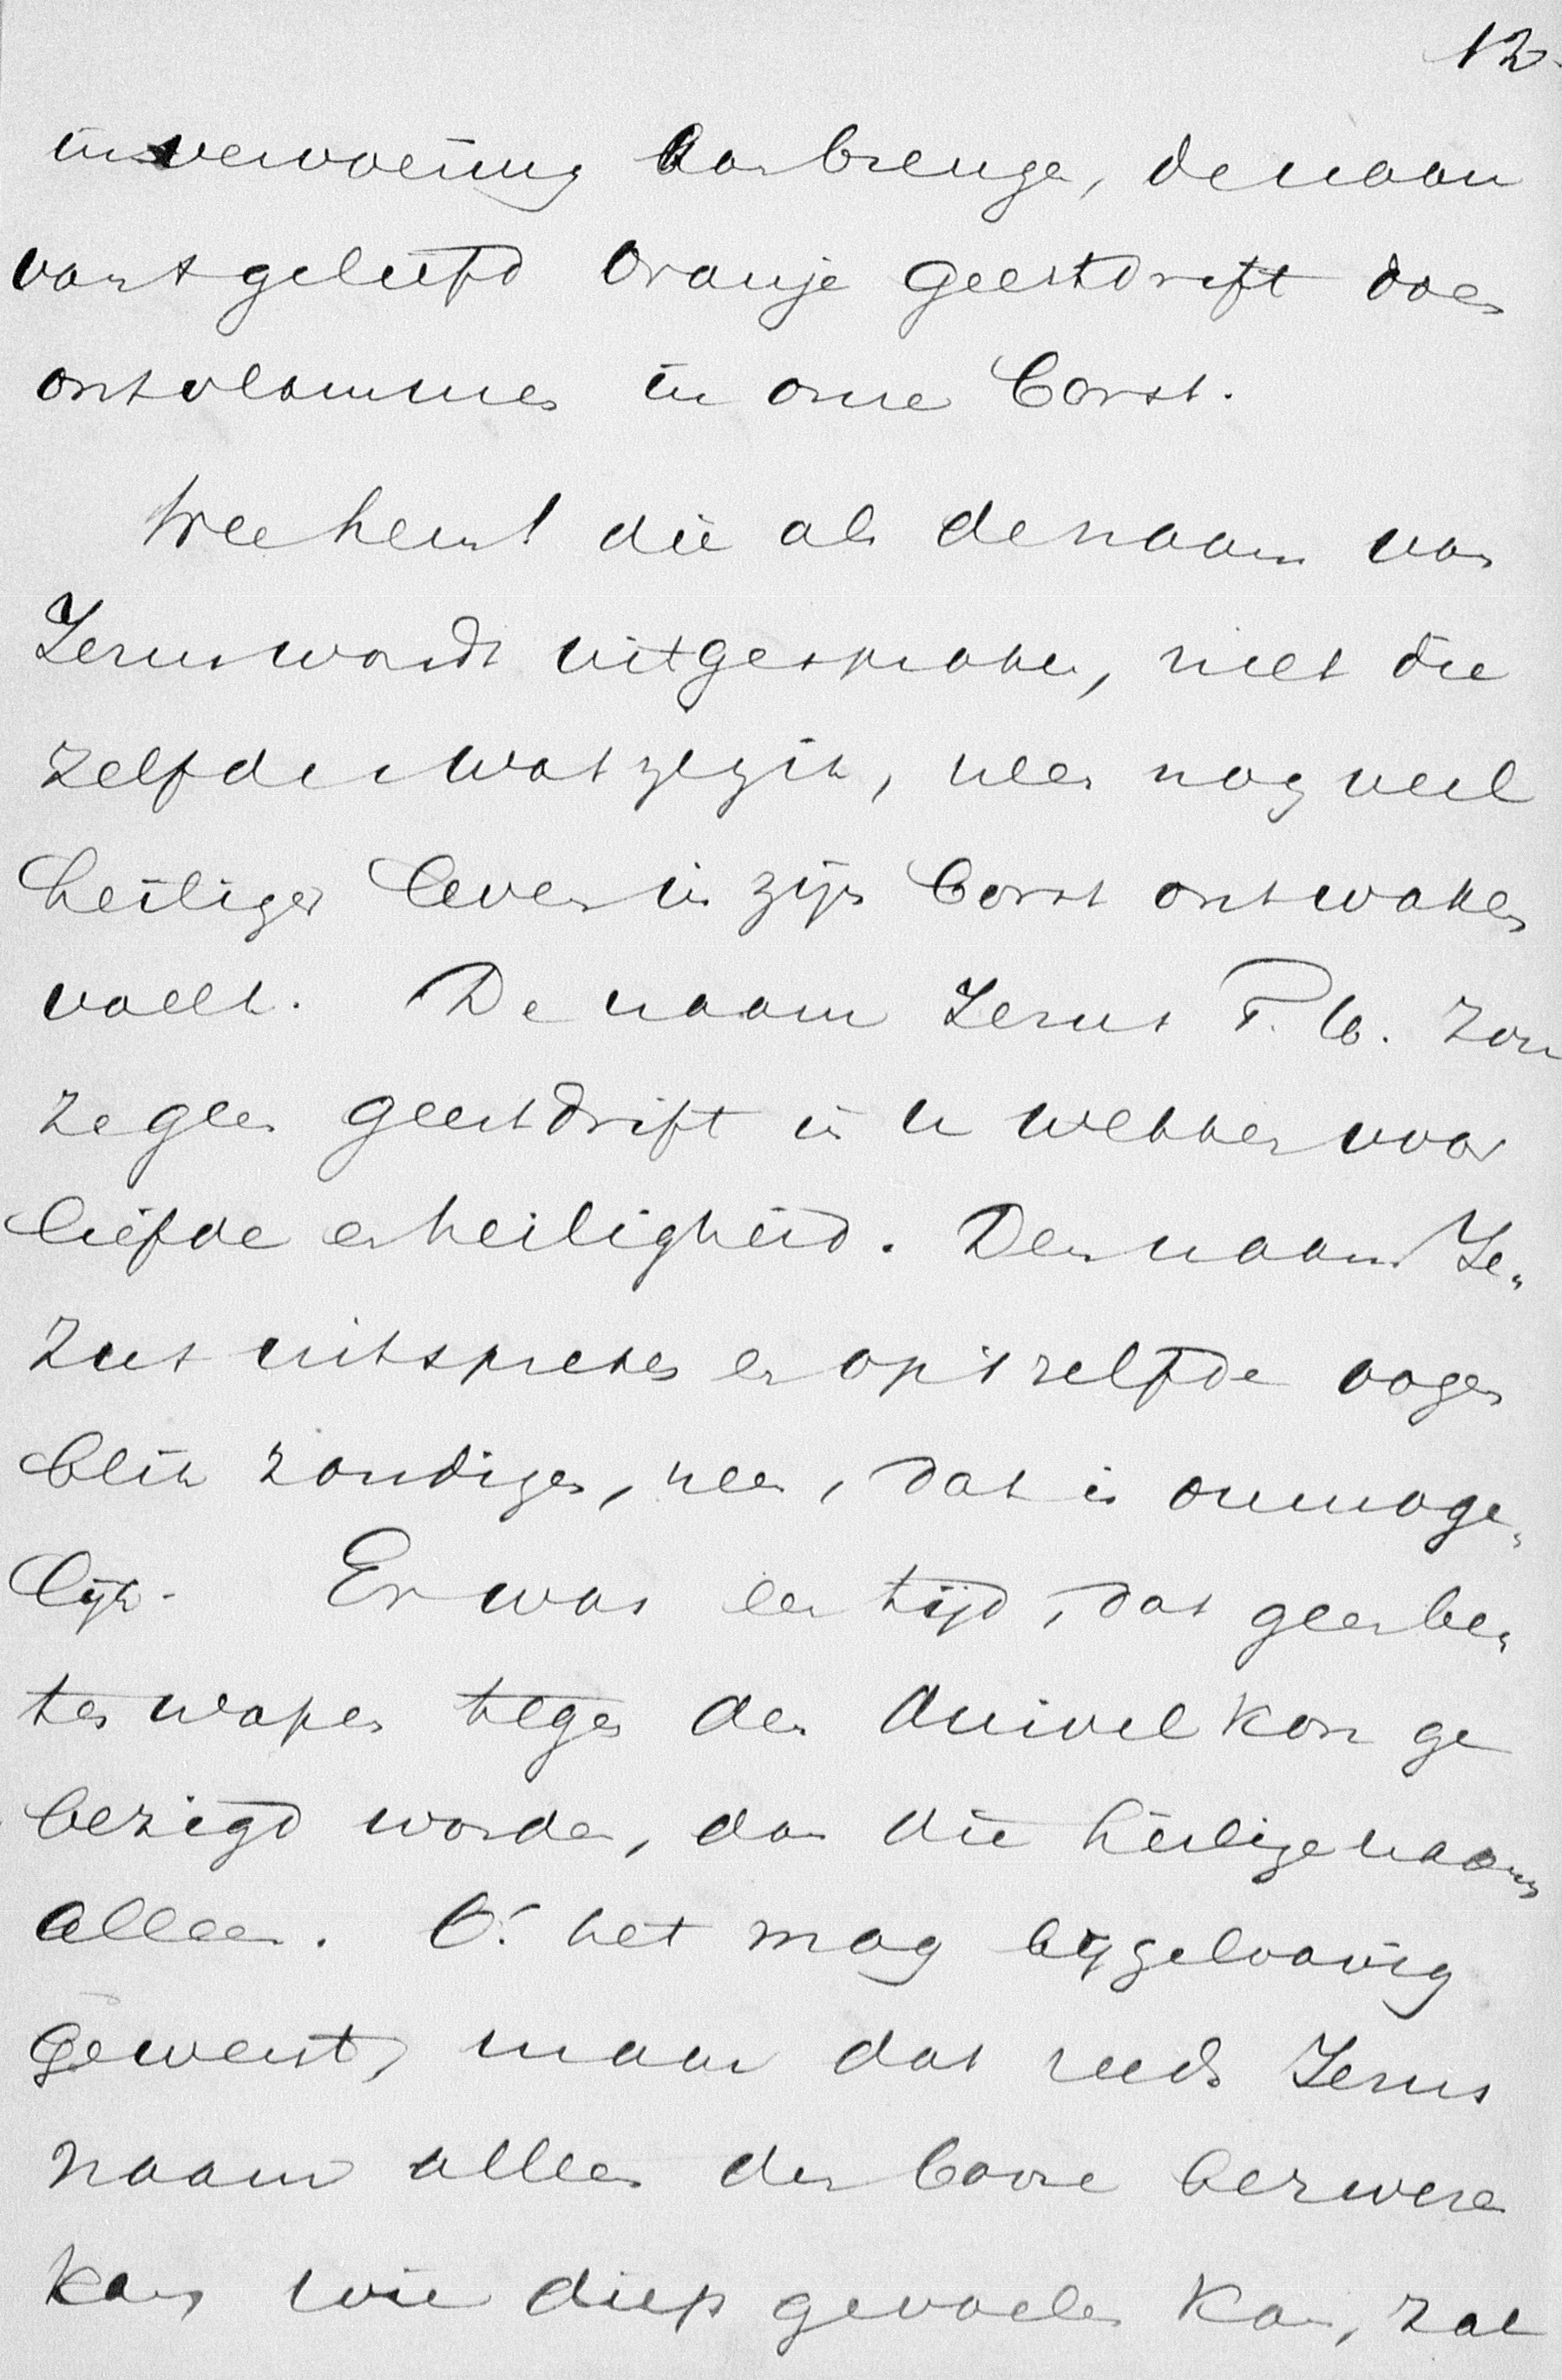 12.
in vervoering kan brengen, de naam
van 't geliefd Oranje geestdrift doen
ontvlammen in onze borst.
Wee hem! die als de naam van
Jezus wordt uitgesproken, niet die
zelfde wat zeg ik, neen nog veel
heiliger leven in zijn borst ontwaken
voelt. De naam Jezus T. G. zou
ze geen geestdrift in u wekken voor
liefde en heiligheid. Den naam Je„
zus uitspreken en op 't zelfde oogen
blik zondigen, neen, dat is onmoge„
lijk. Er was een tijd, dat geen be„
ter wapen tegen den duivel kon ge
bezigd worden, dan die heilige naam
alleen. O! het mag bijgeloovig
geweest, maar dat reeds Jezus
naam alleen den booze bezweren
kan, wie diep gevoelen kan, zal